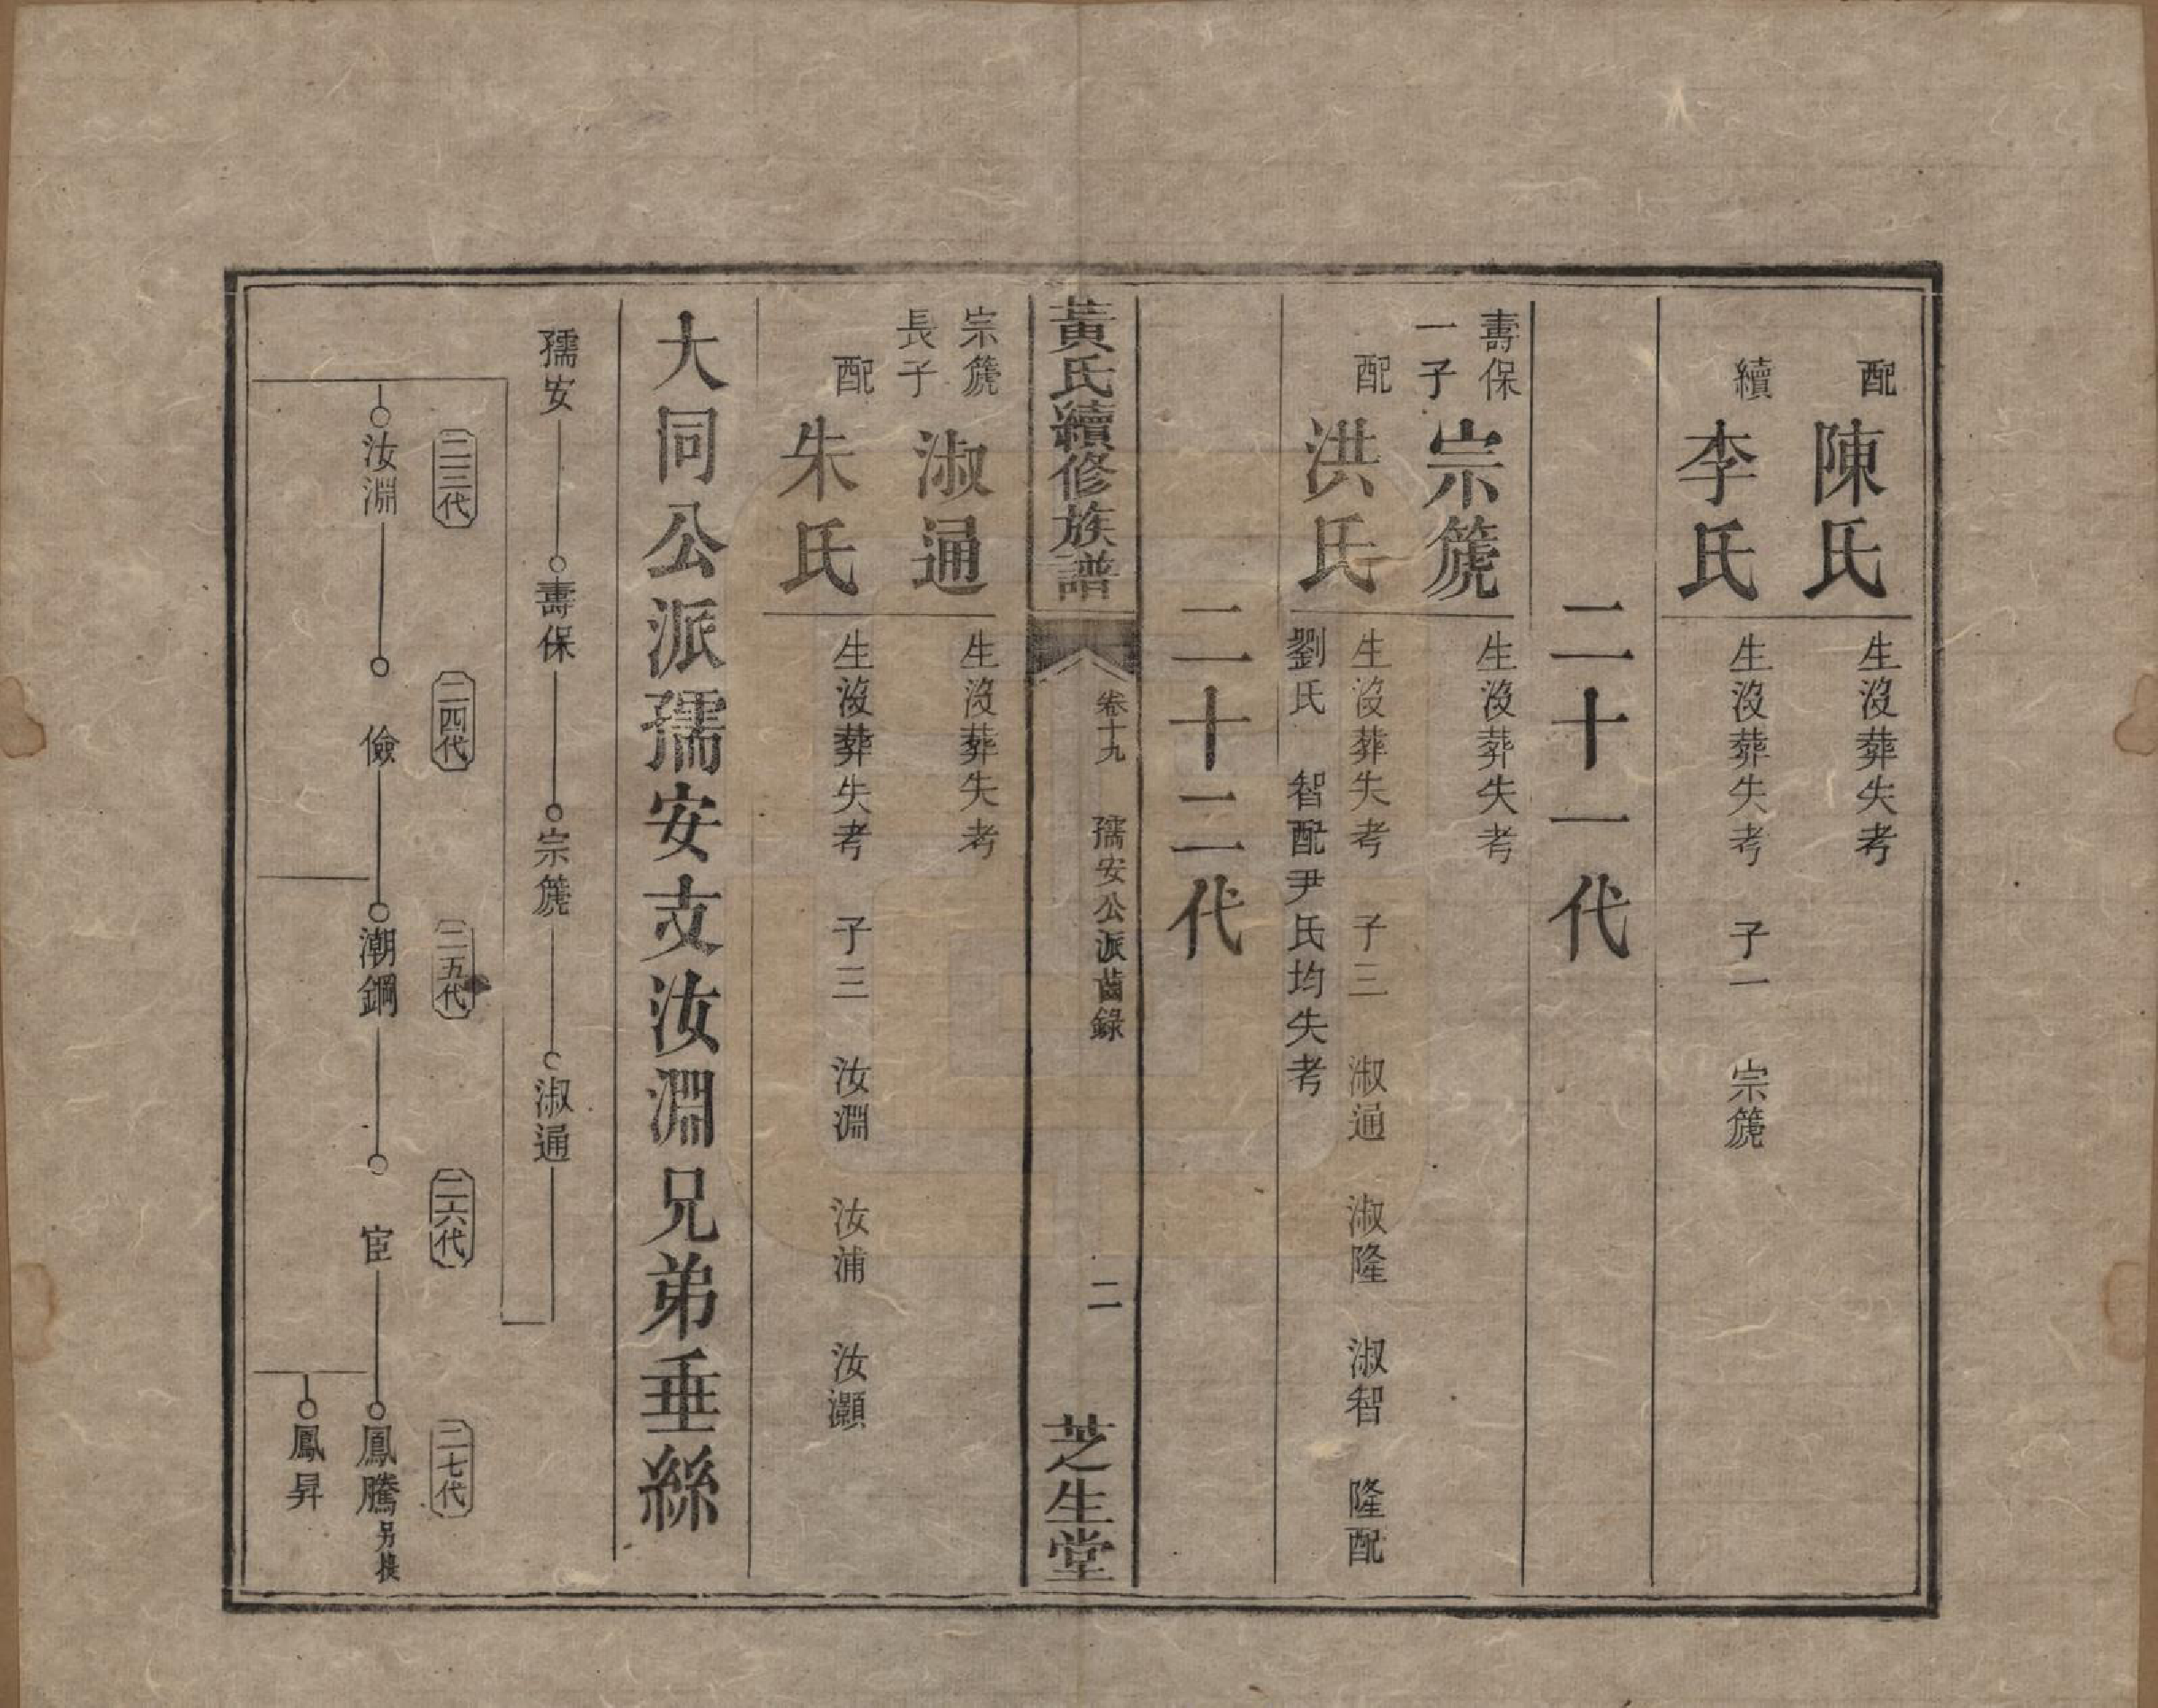 配 陳氏 生沒葬失考
續 李氏 生沒葬失考 子一 宗篪
二十一代
壽保一子 宗篪 生沒葬失考
配 洪氏 生沒葬失考 子三 淑通 淑隆 淑智 隆配
劉氏 智配尹氏均失考
二十二代
黃氏續修族譜 卷十九 孺安公派齒錄 二 芝生堂
宗篪長子 淑通 生沒葬失考
配 朱氏 生沒葬失考 子三 汝淵 汝浦 汝灝
大同公派孺安支汝淵兄弟垂絲
孺安 壽保 宗篪 淑通
二三代 二四代 二五代 二六代 二七代
汝淵 儉 潮鋼 宦 鳳騰 另接
鳳昇